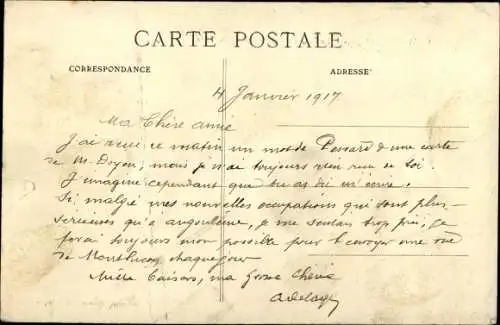 CARTE POSTALE
CORRESPONDANCE
ADRESSE
4 Janvier 1917
Ma Chère amie
J'ai ce matin un mot de et une carte
de M. Doyon, mais je n'ai toujours rien reçu de toi.
J'imagine cependant que tu as dû m'écrire.
Si malgré mes nouvelles occupations qui sont plus
sérieuses qu'à angoulême, je me sentais trop pris, je
ferai toujours mon possible pour t'envoyer une vue
de Montluçon chaque jour
Mille baisers, ma Grosse Chérie